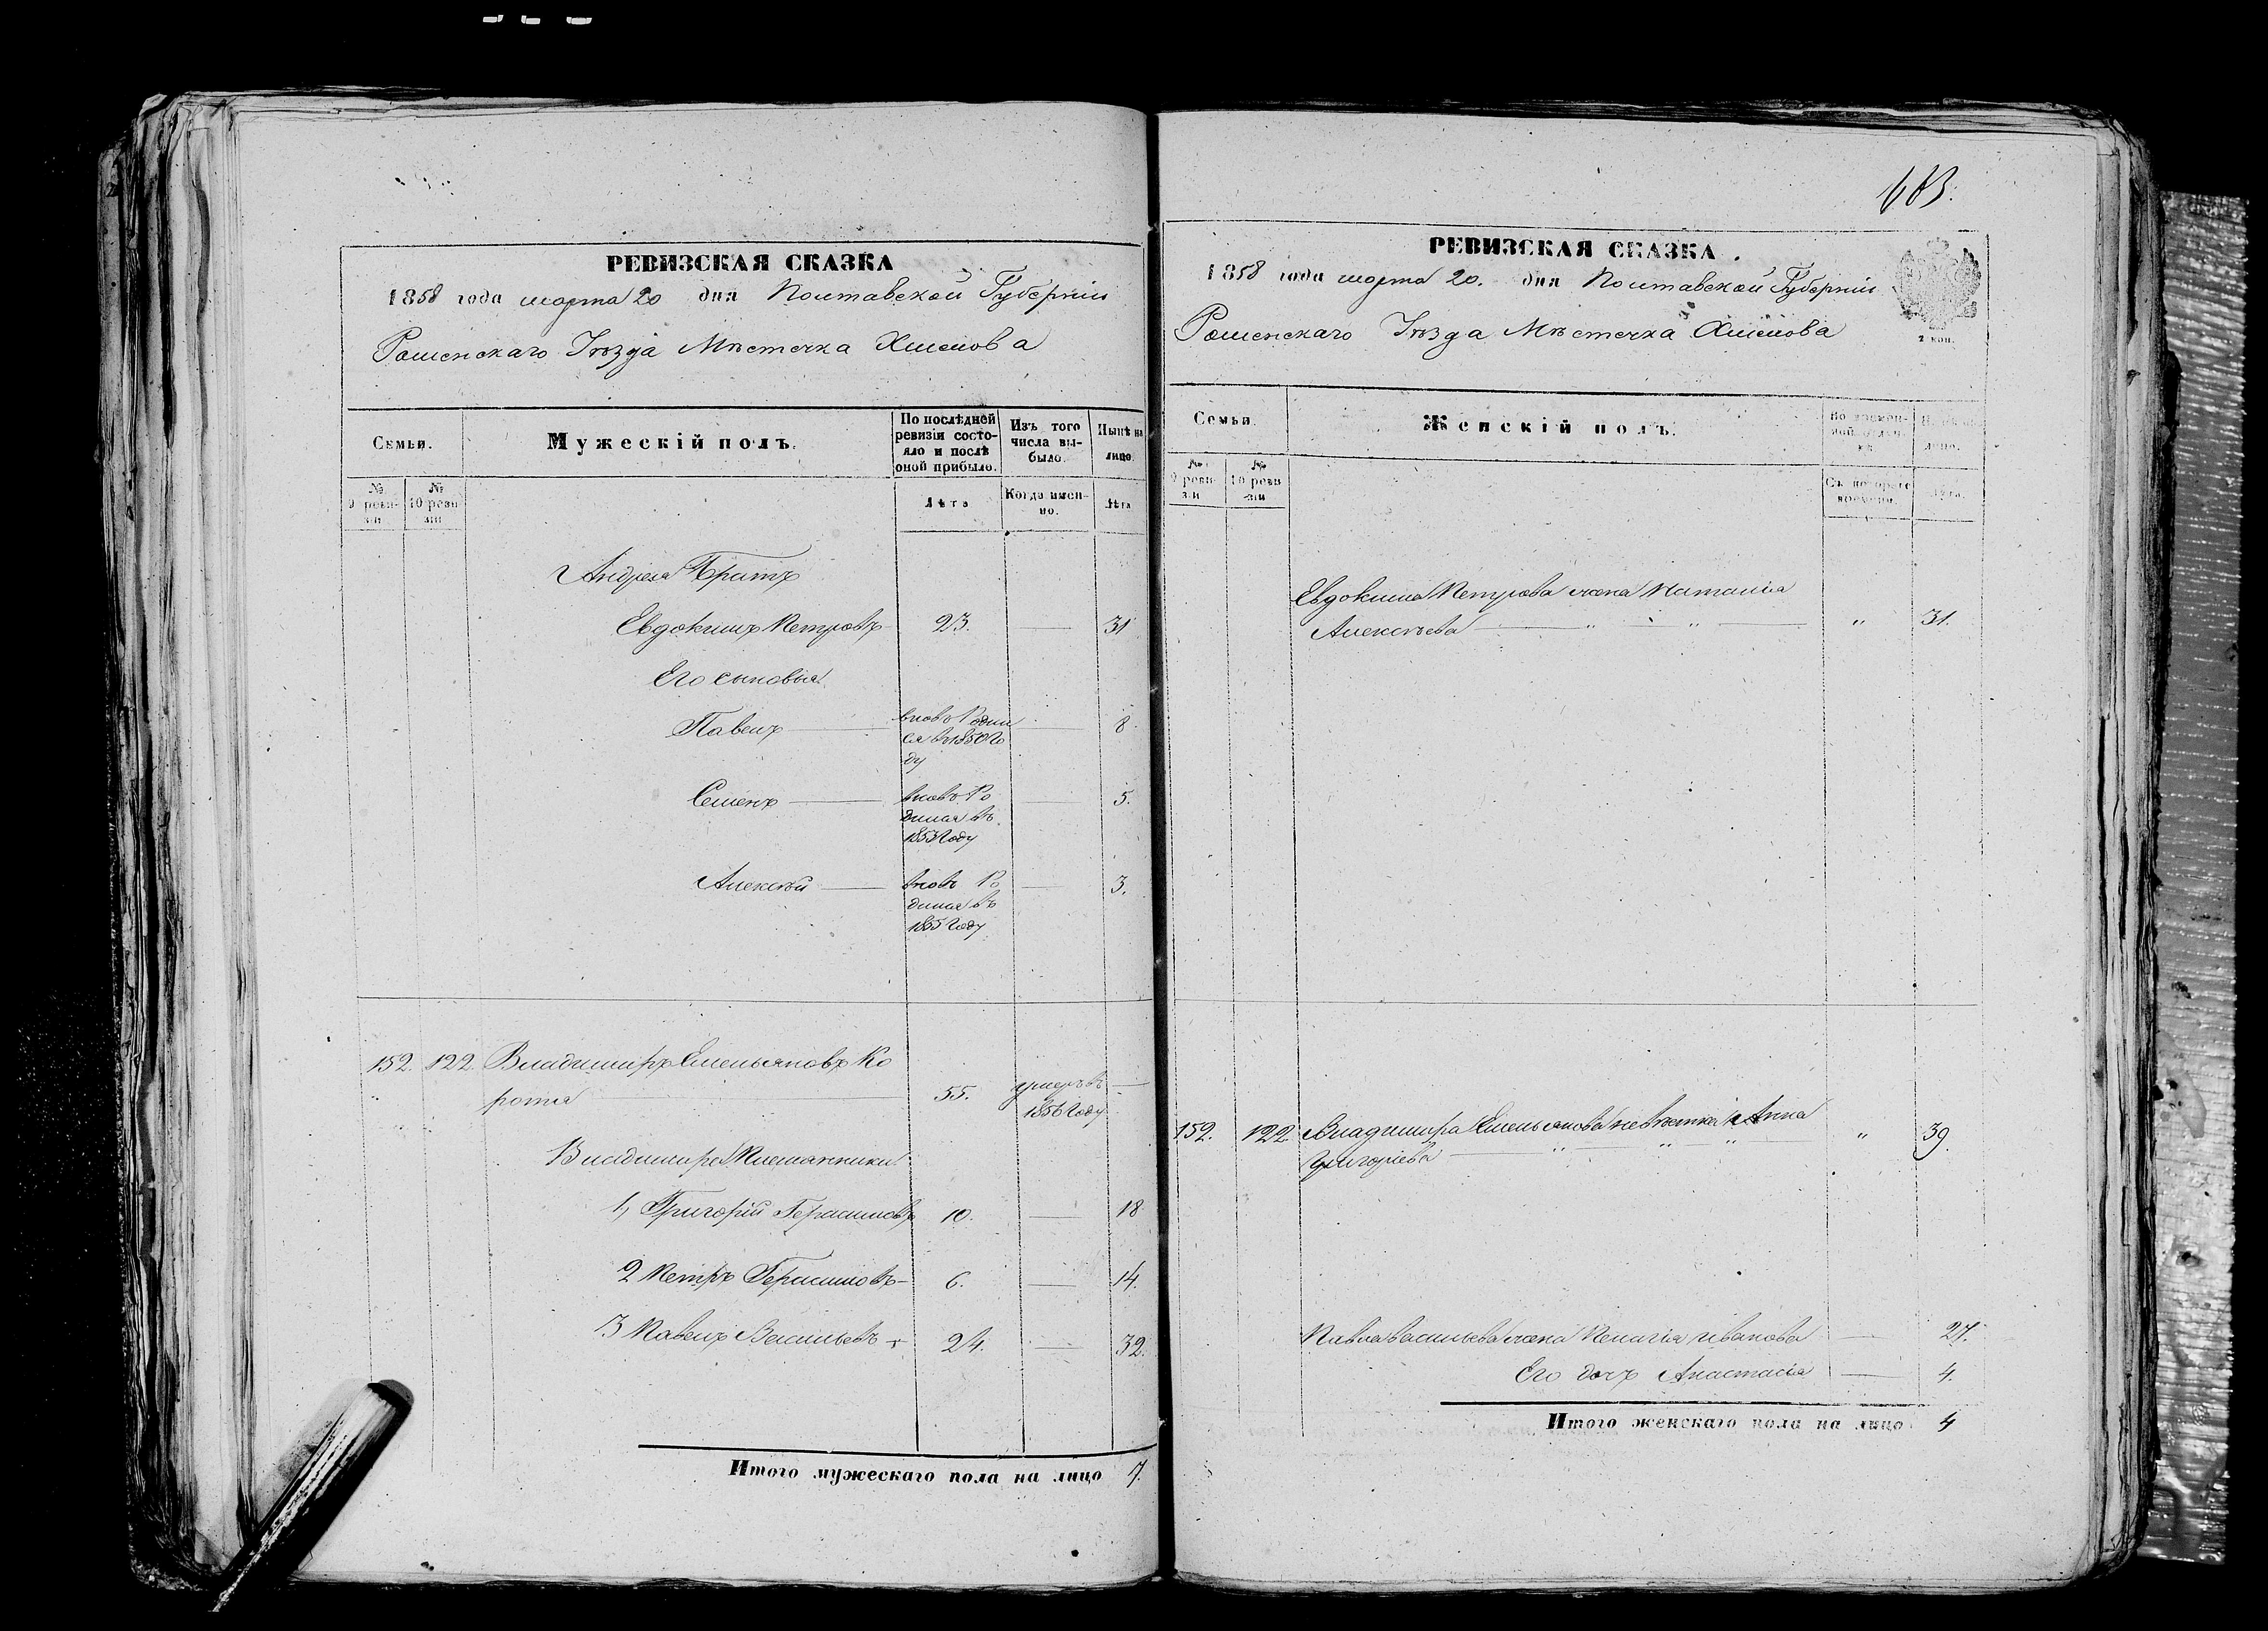 РЕВИЗСКАЯ СКАЗКА
1858 года марта 20 дня Полтавской Губерніи
Роменскаго Уѣзда Мѣстечка Хмелова
Семьи.
Мужескій полъ.
По послѣдней ревизіи состо-
яло и послѣ
оной прибыло.
Изъ того
числа вы-
было.
Нынѣ на
лицо.
№
9 реви-
зіи
№
10 реви
зіи
Лѣта
Когда имен-
но.
Лѣта
Андрея Братъ
Евдокимъ Петровъ 23. 31
Его сыновья
Павелъ вновь Родил
ся въ 1850 Го
ду 8
Семенъ вновь Ро
дился въ
1853 Году 5.
Алексѣй вновь Ро
дился въ
1855 Году 3.
152. 122. Владимиръ Емельяновъ Ко
ротя 55. умеръ въ
1856 Году
Владимира Племянники
1, Григорій Герасимовъ 10. 18
2 Петръ Герасимовъ 6. 14.
3 Павелъ Васильевъ 24. 32.
Итого мужескаго пола на лицо 7.
РЕВИЗСКАЯ СКАЗКА.
1858 года марта 20. дня Полтавской Губерніи
Роменскаго Уѣзда Мѣстечка Хмелова
2 коп.
Семьи.
Женскій полъ.
Во времен-
ной отлуч-
кѣ
лицо.
№
9 реви-
зіи
№
10 реви
зіи
Съ котораго
времени.
Лѣта.
Евдокима Петрова жена Наталія
Алексѣева " " " 31.
152. 122. Владимира Емельянова невѣстка Анна
Григоріева " " " " 39.
Павла Васильева жена Пелагія Иванова 27.
Его дочь Анастасія 4.
Итого женскаго пола на лицо 4